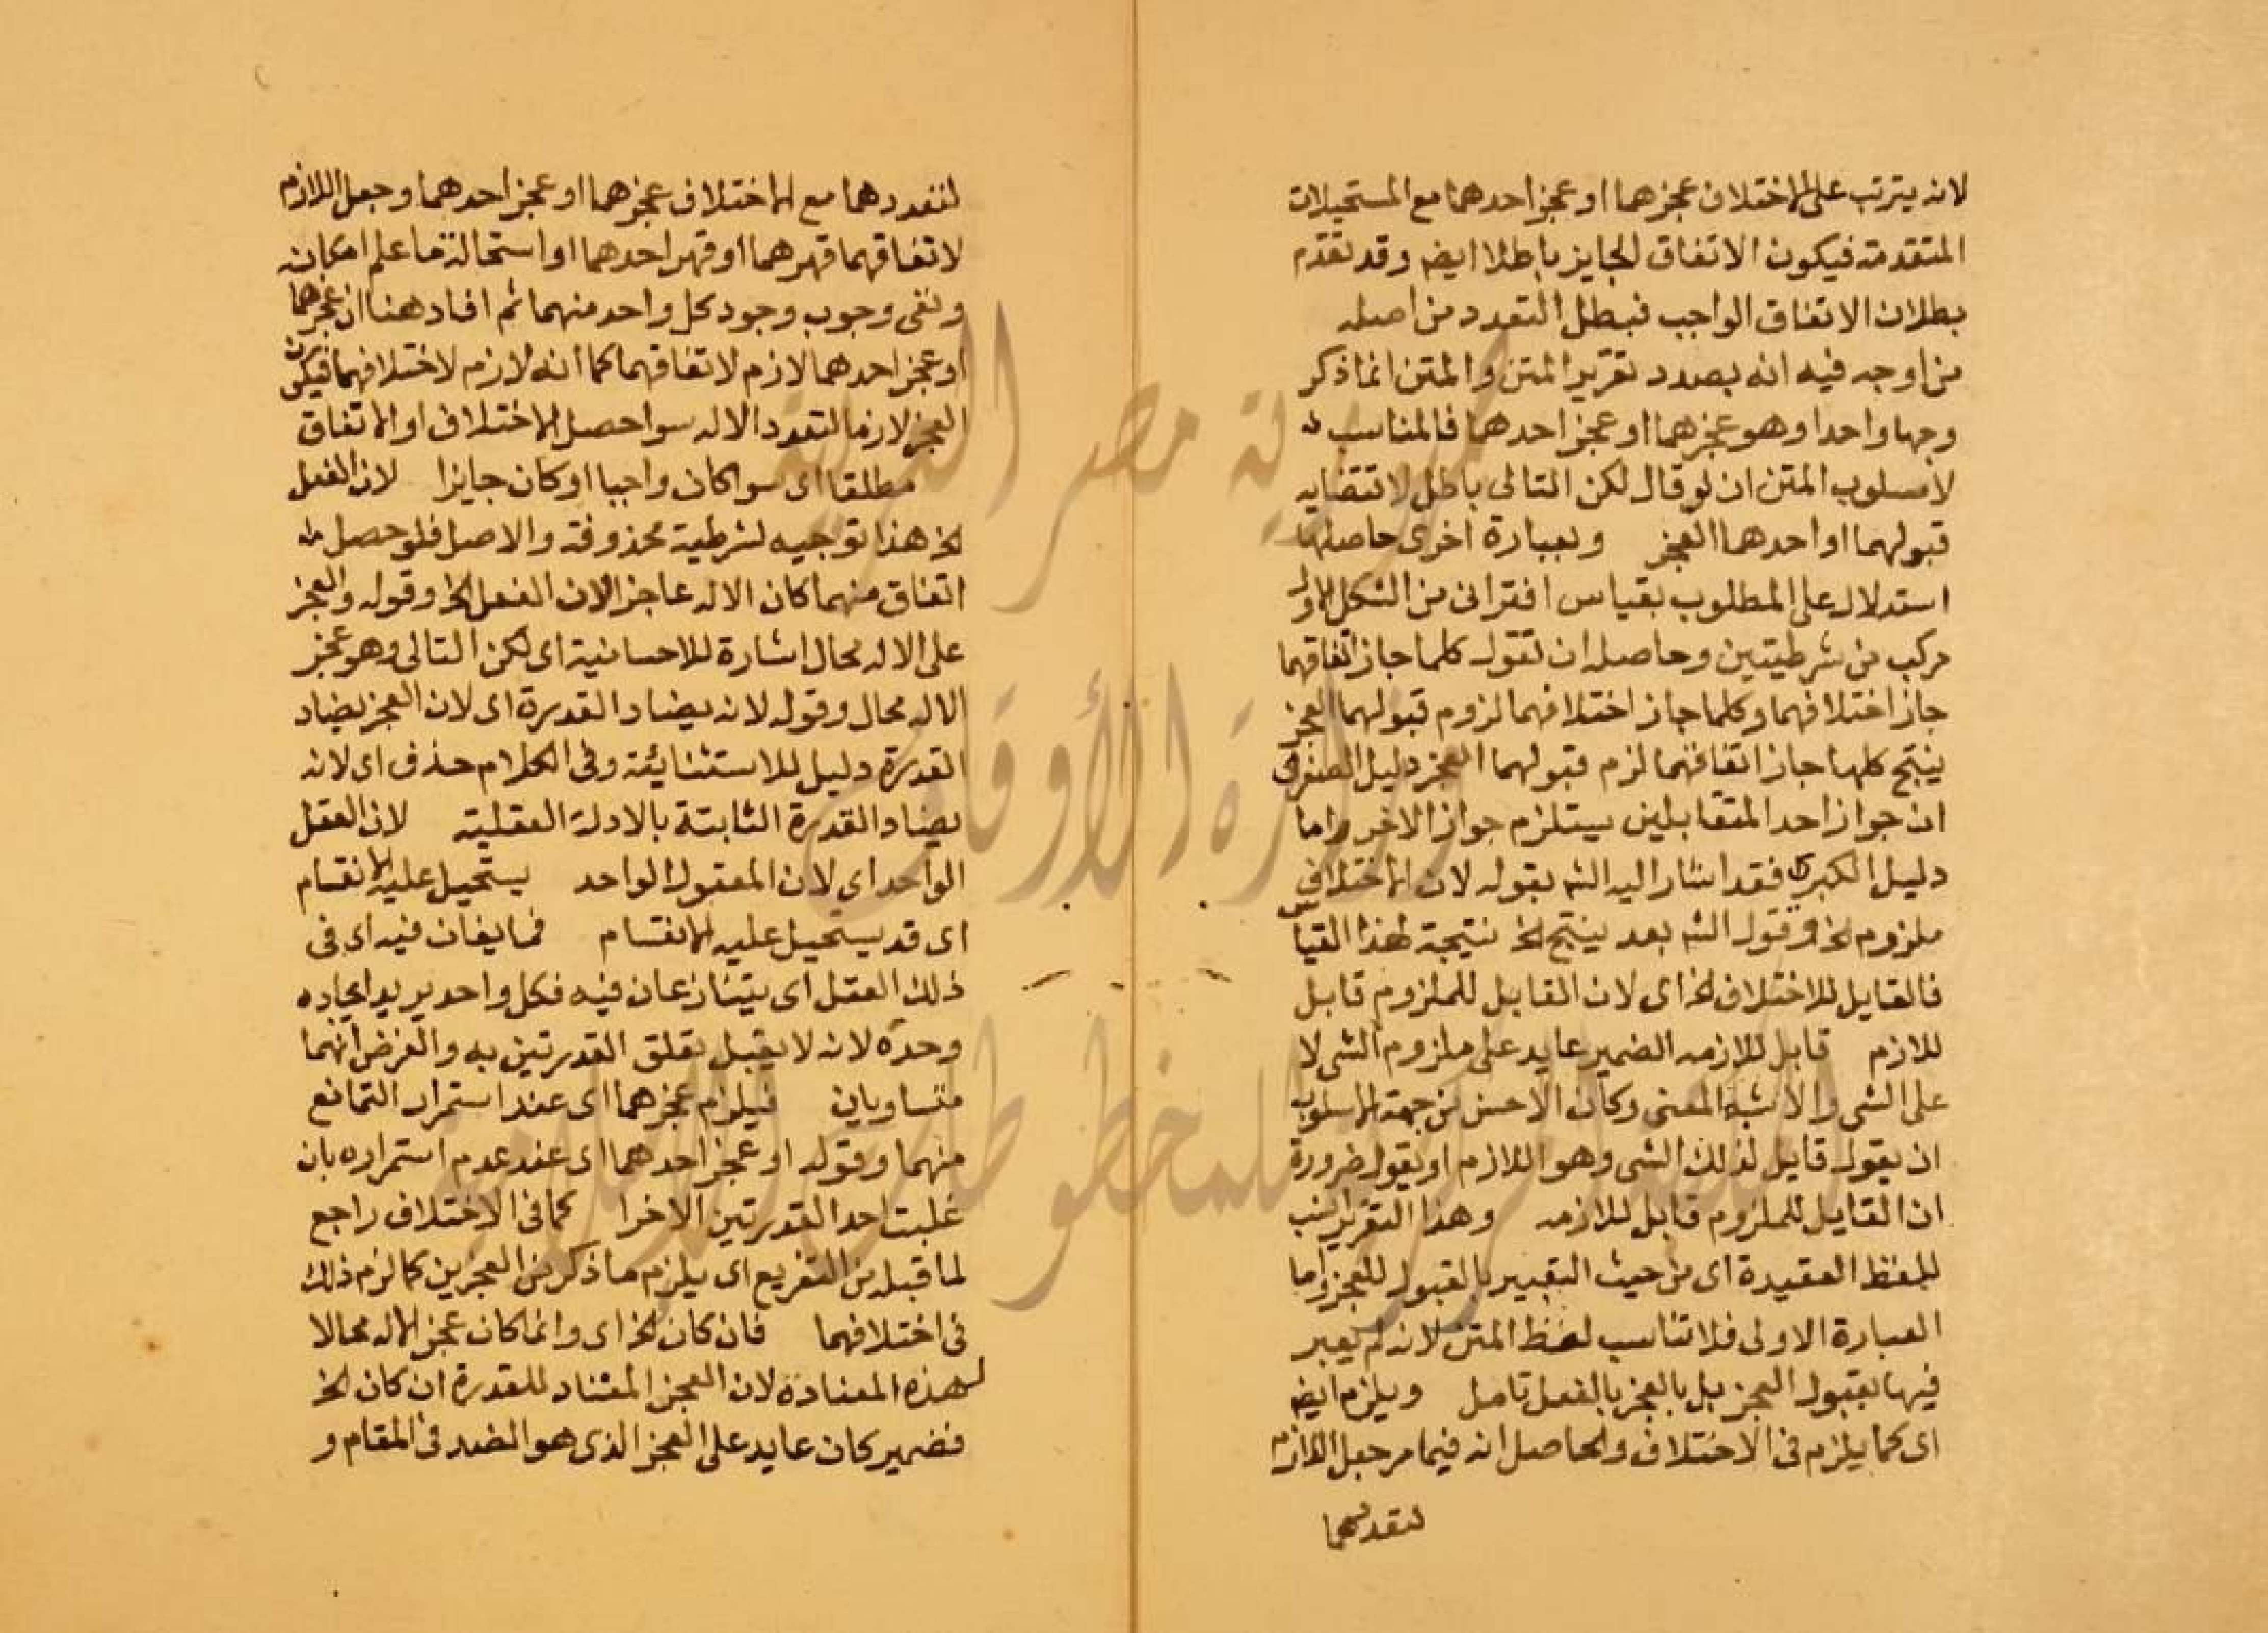 لانه يترتب على الاختلاف عجزهما او عجز احدهما مع المستحيلات
المتقدمة فيكون الاتفاق الجايز باطلا ايضه وقد تقدم
بطلان الاتفاق الواجب فبطل التعدد من اصله
من اوجه فيه انه بصدد تقرير المتن والمتن انما ذكر
وجها واحدا وهو عجزهما او عجز احدهما فالمناسب له
لاسلوب المتن ان لو قال لكن التالى باطل لاقتضايه
قبولهما او احدهما العجز وبعبارة اخرى حاصلها
استدلال على المطلوب بقياس اقترانى من الشكل الاول
مركب من شرطيتين وحاصله ان تقول كلما جاز اتفاقهما
جاز اختلافهما وكلما جاز اختلافهما لزوم قبولهما العجز
ينتج كلما جاز اتفاقهما لزم قبولهما العجز دليل الصغرى
ان جواز احد المتقابلين يستلزم جواز الاخر واما
دليل الكبرى فقد اشار اليه الشه بقوله لان الاختلاف
ملزوم الخ وقول الشه بعد ينتج الخ نتيجة لهذا القياس
فالقابل للاختلاف الخ اى لان القابل للملزوم قابل
للازم قابل للازمه الضمير عايد على ملزوم الشى لا
على الشى والا شبه المعنى وكان الاحسن من جهة الاسلوب
ان يقول قابل لذلك الشى وهو اللازم او يقول ضرورة
ان القابل للملزوم قابل للازمه وهذا التقرير انسب
للفظ العقيدة اى من حيث التعبير بالقبول للعجز واما
العبارة الاولى فلا تناسب لفظ المتن لانه لم يعبر
فيها بقبول العجز بل بالعجز بالفعل تامل ويلزم ايضه
اى كما يلزم فى الاختلاف والحاصل انه فيما مر جعل اللازم
لتعددهما
لتعددهما مع الاختلاف عجزهما او عجز احدهما وجعل اللازم
لاتفاقهما قهرهما او قهر احدهما او استحالة ما علم امكانه
ونفى وجوب وجود كل واحد منهما ثم افاد هنا ان عجزهما
او عجز احدهما لازم لاتفاقهما كما انه لازم لاختلافهما فيكون
العجز لازما لتعدد الاله سوا حصل الاختلاف او الاتفاق
مطلقا اى سوا كان واجبا او كان جايزا لان الفعل
الخ هذا توجيه لشرطية محذوفة والاصل فلو حصل له
اتفاق منهما كان الاله عاجزا لان الفعل الخ وقوله والعجز
على الاله محال اشارة للاحسانية اى لكن التالى وهو عجز
الاله محال وقوله لانه يضاد القدرة اى لان العجز يضاد
القدرة دليل للاستثنايئة وفى الكلام حذف اى لانه
يضاد القدرة الثابتة بالادلة العقلية لان العقل
الواحد اى لان المعقول الواحد يستحيل عليه الانقسام
اى قد يستحيل عليه الانقسام فمايغان فيه اى فى
ذلك العقل اى يتنازعان فيه فكل واحد يريد ايجاده
وحده لانه لا يقبل تعلق القدرتين به والغرض انهما
متساويان فيلزم عجزهما اى عند استمرار التمانع
منهما وقوله او عجز احدهما اى عند عدم استمراره بان
غلبت احد القدرتين الاخرا كما فى الاختلاف راجع
لما قبله من التفريع اى يلزم ما ذكر من العجزين كما لزم ذلك
فى اختلافهما فان كان الخ اى وانما كان عجز الاله محالا
لهذه المعنادة لان العجز المشناد للقدرة ان كان الخ
فضمير كان عايد على العجز الذى هو الضد فى المقام و